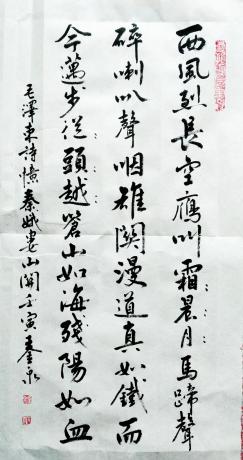 西風烈長空鴈叫霜晨月馬蹄聲
碎喇叭聲咽雄關漫道真如鐵而
今邁步從頭越蒼山如海殘陽如血
毛澤東詩憶秦娥婁山關壬寅奎泉